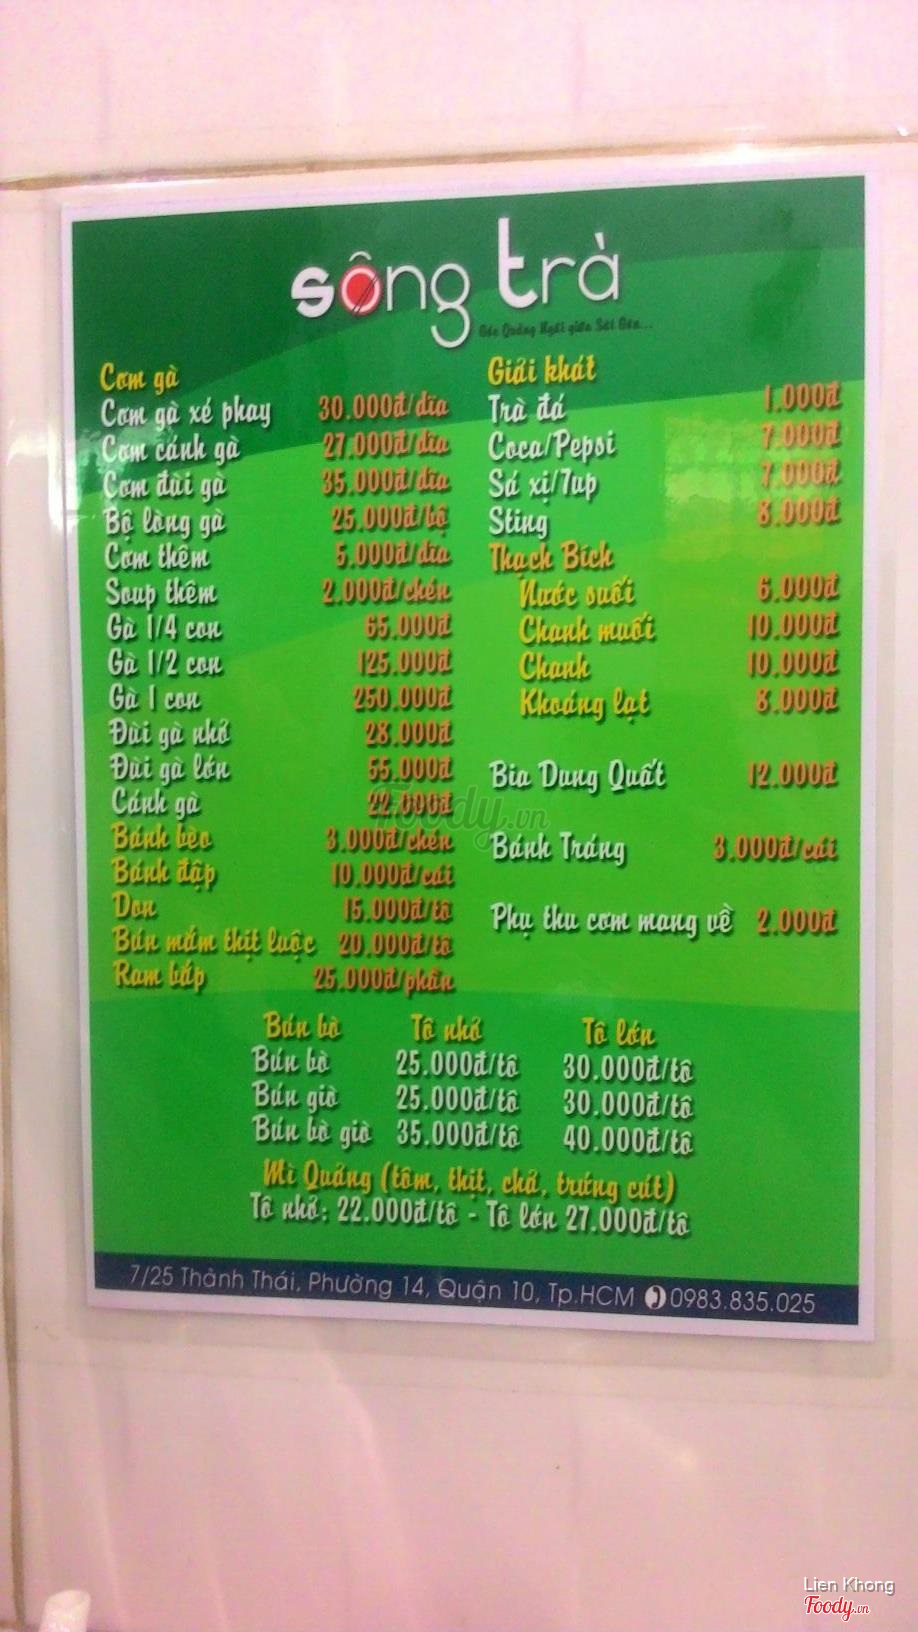 sông trà
Góc Quảng Ngãi giữa Sài Gòn...
Cơm gà
Cơm gà xé phay 30.000đ/dĩa
Cơm cánh gà 27.000đ/dĩa
Cơm đùi gà 35.000đ/dĩa
Bộ lòng gà 25.000đ/bộ
Cơm thêm 5.000đ/dĩa
Soup thêm 2.000đ/chén
Gà 1/4 con 65.000đ
Gà 1/2 con 125.000đ
Gà 1 con 250.000đ
Đùi gà nhỏ 28.000đ
Đùi gà lớn 55.000đ
Cánh gà 22.000đ
Bánh bèo 3.000đ/chén
Bánh đập 10.000đ/cái
Don 15.000đ/tô
Bún mắm thịt luộc 20.000đ/tô
Ram bắp 25.000đ/phần
Giải khát
Trà đá 1.000đ
Coca/Pepsi 7.000đ
Sá xị/7up 7.000đ
Sting 8.000đ
Thạch Bích
Nước suối 6.000đ
Chanh muối 10.000đ
Chanh 10.000đ
Khoáng lạt 8.000đ
Bia Dung Quất 12.000đ
Bánh Tráng 3.000đ/cái
Phụ thu cơm mang về 2.000đ
Bún bò Tô nhỏ Tô lớn
Bún bò 25.000đ/tô 30.000đ/tô
Bún giò 25.000đ/tô 30.000đ/tô
Bún bò giò 35.000đ/tô 40.000đ/tô
Mì Quảng (tôm, thịt, chả, trứng cút)
Tô nhỏ: 22.000đ/tô - Tô lớn 27.000đ/tô
7/25 Thành Thái, Phường 14, Quận 10, Tp.HCM 0983.835.025
Foody.vn
Lien Khong
Foody.vn